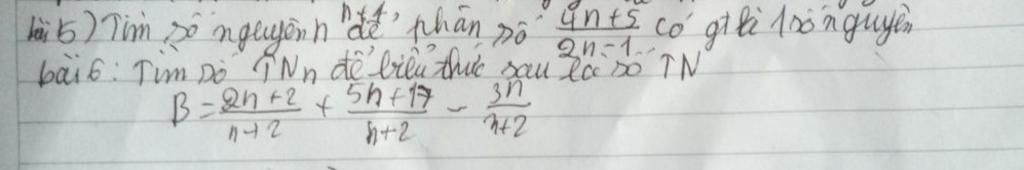 bài 5) Tìm số nguyên n để phân số 4n+5/2n-1 có giá trị là số nguyên
bài 6: Tìm số TN n để biểu thức sau là số TN
B = 2n+2/n+2 + 5n+17/n+2 - 3n/n+2